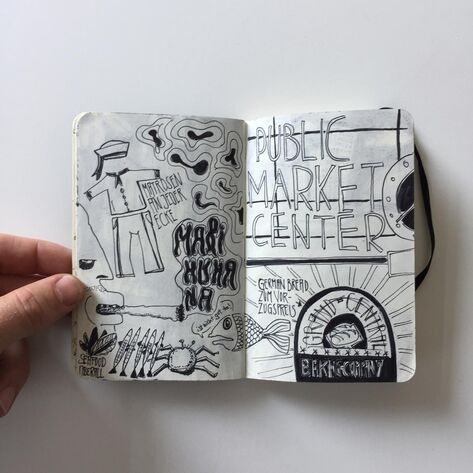 MATROSEN
AN JEDER
ECKE
MARI
HUA
NA
SEAFOOD
ÜBERALL
PUBLIC
MARKET
CENTER
GERMAN BREAD
ZUM VOR-
ZUGSPREIS
GRAND CENTRAL
BAKING COMPANY